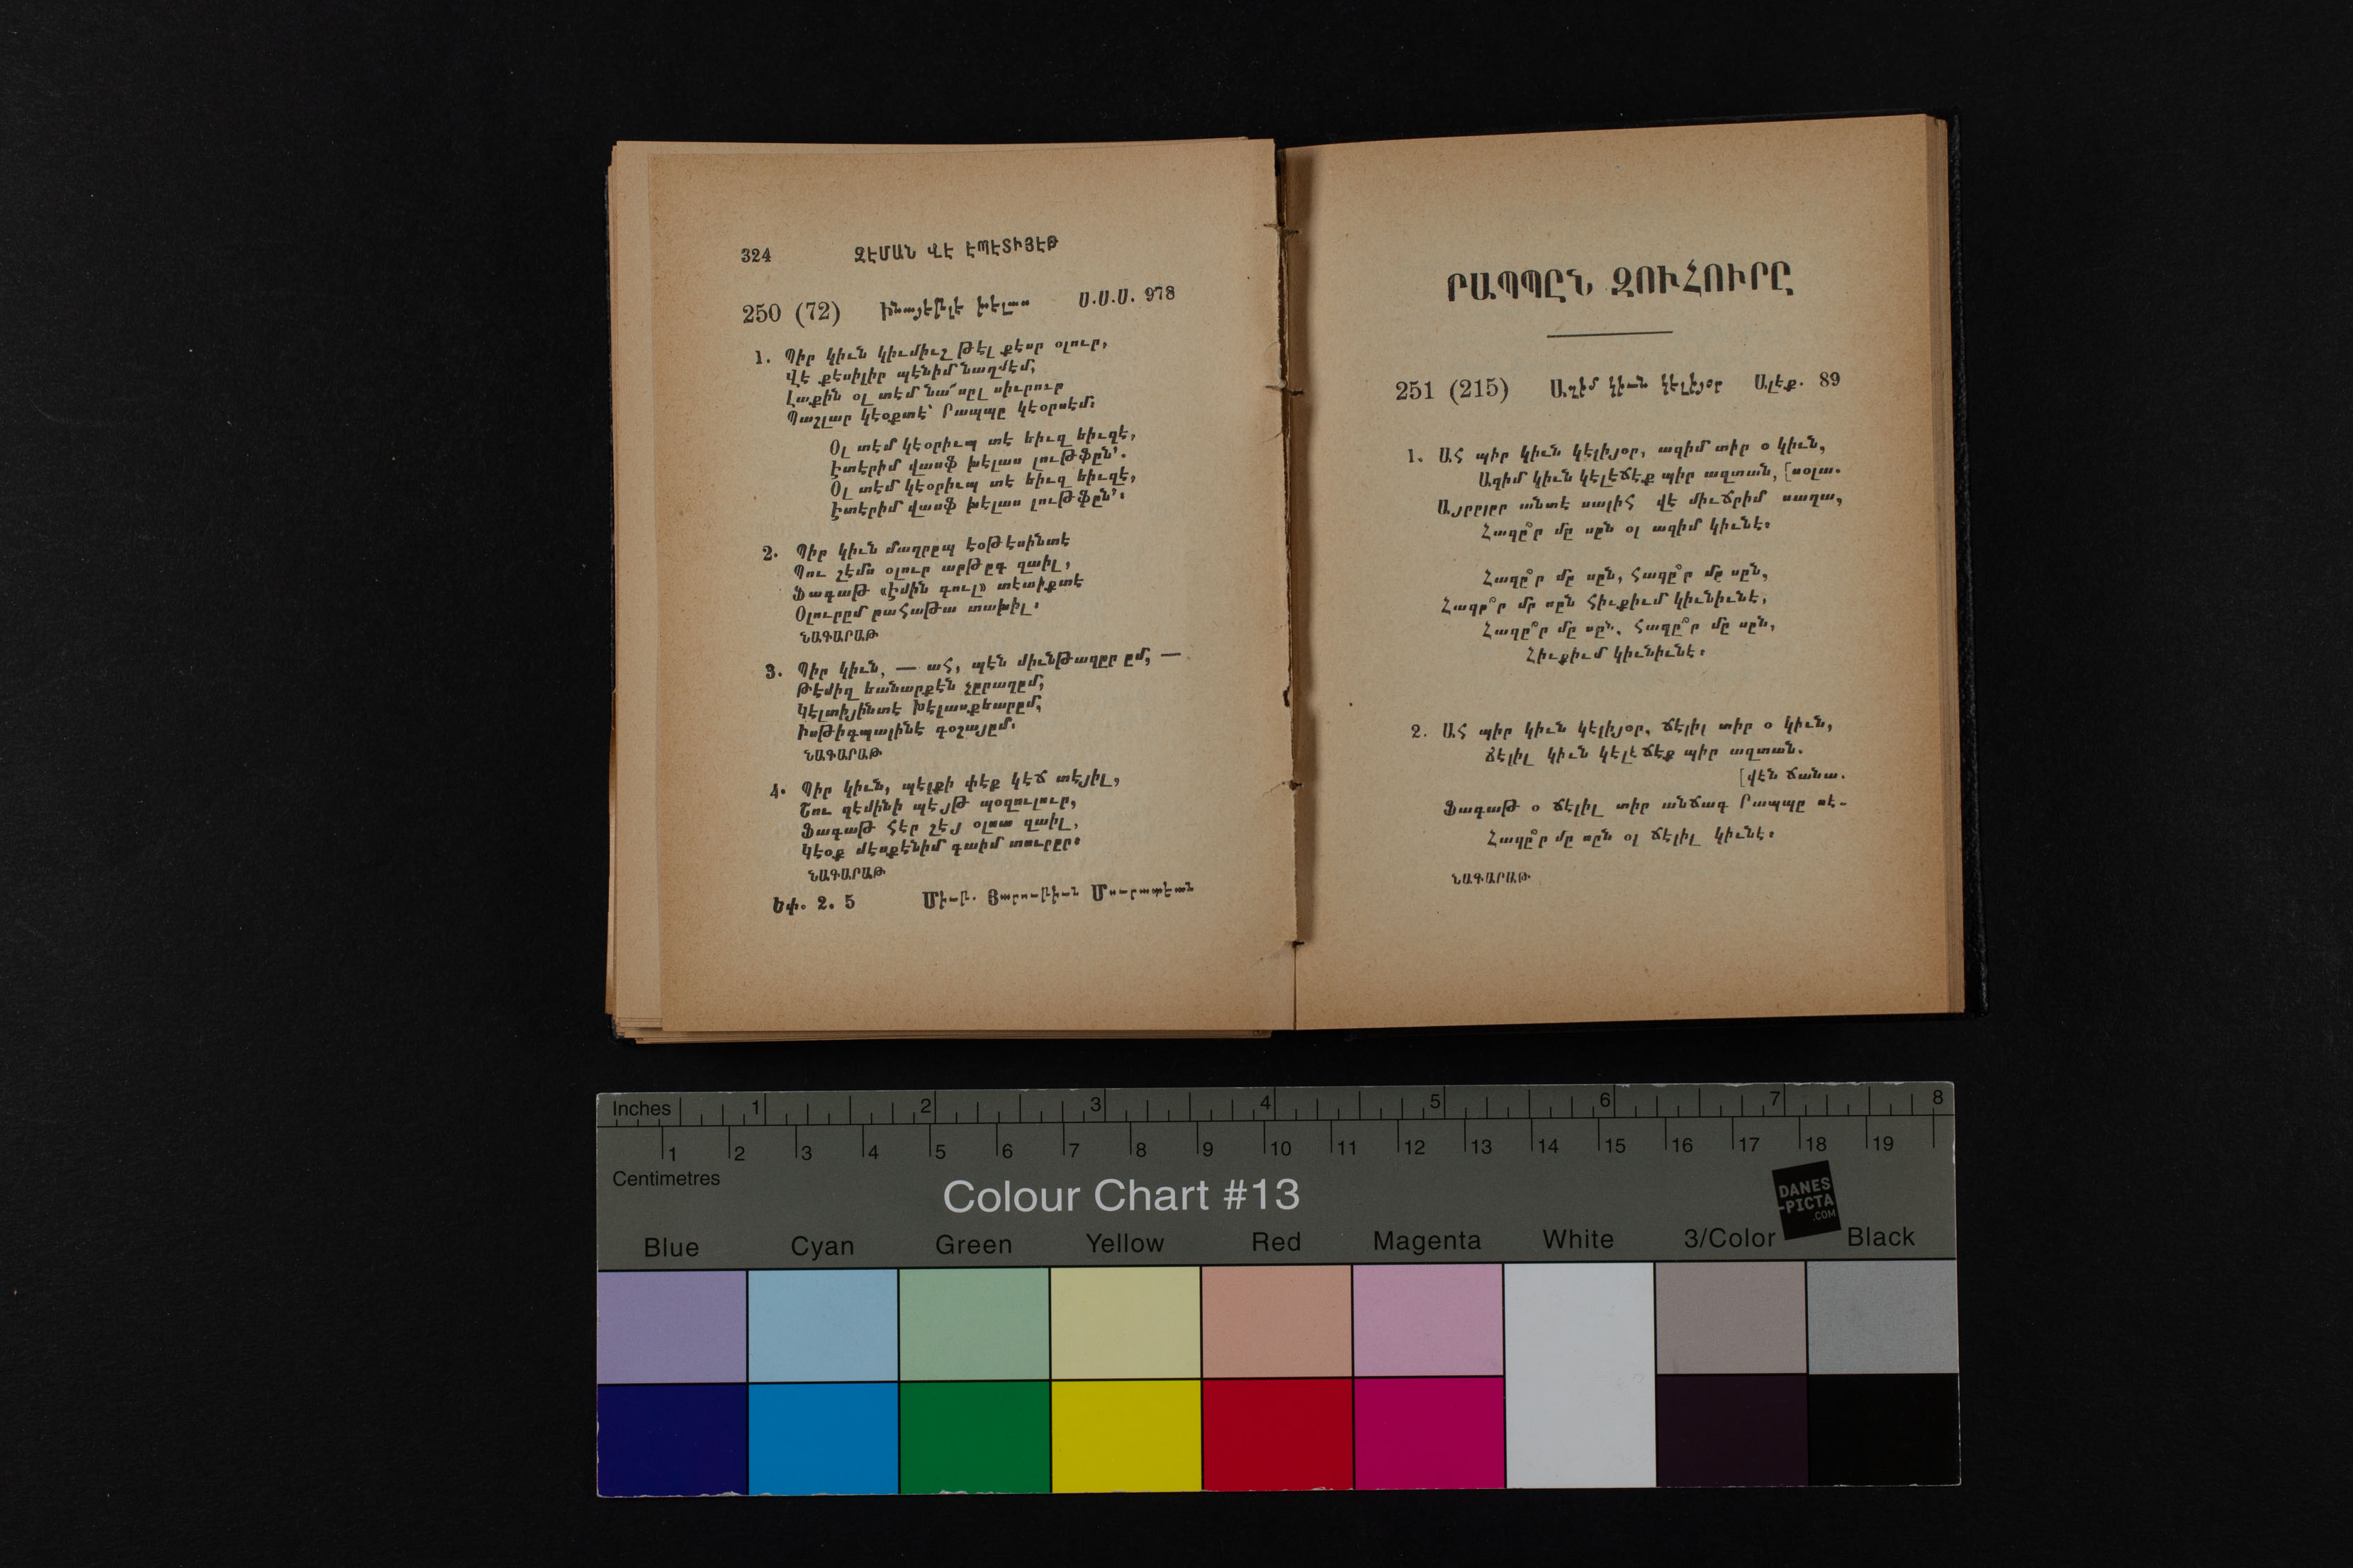 324 ԶԷՄԱՆ ՎԷ ԷՊԷՏԻՅԷԹ
250 (72) Ինայէթլէ խէլաս Ս.Ս.Ս. 978
1. Պիր կիւն կիւմիւշ թէլ քէսր օլուր,
Վէ քէսիլիր պէնիմ նաղմէմ,
Լաքին օլ տէմ նա՜սըլ սիւրուր
Պաշլար կէօքտէ՝ Րապպը կէօրսէմ։
Օլ տէմ կէօրիւպ տէ եիւզ եիւզէ,
Էտէրիմ վասֆ խէլաս լութֆըն՚.
Օլ տէմ կէօրիւպ տէ եիւզ եիւզէ,
Էտէրիմ վասֆ խէլաս լութֆըն՚։
2. Պիր կիւն մաղրըպ էօթէսինտէ
Պու շէմս օլուր արթըգ զաիլ,
Ֆագաթ «Էմին գուլ» տէտիքտէ
Օլուրըմ րահաթա տախիլ։
ՆԱԳԱՐԱԹ
3. Պիր կիւն, — ահ, պէն միւնթազըր ըմ, —
Թէմիզ եանարքէն չըրաղըմ,
Կէլտիյինտէ Խէլասքեարըմ,
Իսթիգպալինէ գօշայըմ։
ՆԱԳԱՐԱԹ
4. Պիր կիւն, պէլքի փէք կէճ տէյիլ,
Շու զէմինի պէյթ պօզուլուր,
Ֆագաթ հէր շէյ օլսա զաիլ,
Կէօք մէսքէնիմ գաիմ տուրըր։
ՆԱԳԱՐԱԹ
Եփ. 2. 5 Միւթ. Յարութիւն Մուրատէան
ՐԱՊՊԸՆ ԶՈՒՀՈՒՐԸ
251 (215) Ազիմ կիւն կէլիյօր Ալէք. 89
1. ԱՀ պիր կիւն կէլիյօր, ազիմ տիր օ կիւն,
Ազիմ կիւն կէլէճէք պիր ազտան, [սօլա.
Այըըլըր անտէ սալիհ վէ միւճրիմ սաղա,
Հազը՞ր մը սըն օլ ազիմ կիւնէ։
Հազը՞ր մը սըն, հազը՞ր մը սըն,
Հազը՞ր մը սըն հիւքիւմ կիւնիւնէ,
Հազը՞ր մը սըն, հազը՞ր մը սըն,
Հիւքիւմ կիւնիւնէ։
2. ԱՀ պիր կիւն կէլիյօր, ճէլիլ տիր օ կիւն,
Ճէլիլ կիւն կէլէճէք պիր ազտան.
[վէն ճանա.
Ֆագաթ օ ճէլիլ տիր անճագ Րապպը սէ-
Հազը՞ր մը սըն օլ ճէլիլ կիւնէ։
ՆԱԳԱՐԱԹ
Inches 1 2 3 4 5 6 7 8
1 2 3 4 5 6 7 8 9 10 11 12 13 14 15 16 17 18 19
Centimetres
Colour Chart #13
DANES
-PICTA
.COM
Blue Cyan Green Yellow Red Magenta White 3/Color Black